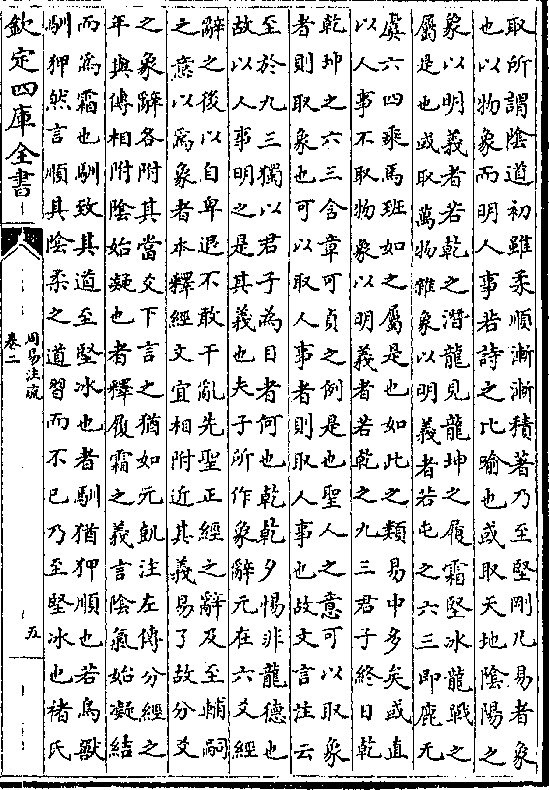 取所謂陰道初雖柔順漸漸積著乃至堅剛凡易者象
也以物象而明人事若詩之比喻也或取天地陰陽之
象以明義者若乾之潛龍見龍坤之履霜堅冰龍戰之
屬是也或取萬物雜象以明義者若屯之六三即鹿无
虞六四乘馬班如之屬是也如此之類易中多矣或直
以人事不取物象以明義者若乾之九三君子終日乾
乾坤之六三含章可貞之例是也聖人之意可以取象
者則取象也可以取人事者則取人事也故文言注云
至於九三獨以君子為日者何也乾乾夕惕非龍德也
故以人事明之是其義也夫子所作象辭元在六爻經
辭之後以自卑退不敢干亂先聖正經之辭及至輔嗣
之意以為象者本釋經文宜相附近其義易了故分爻
之象辭各附其當爻下言之猶如元凱注左傳分經之
年與傳相附陰始凝也者釋履霜之義言陰氣始凝結
而為霜也馴致其道至堅冰也者馴猶狎順也若鳥獸
馴狎然言順其陰柔之道習而不已乃至堅冰也褚氏
欽定四庫全書
周易注疏
卷二
五